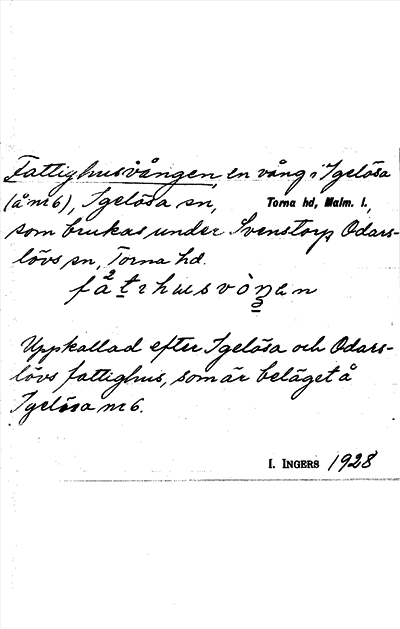 Fattighusvången, en vång i Igelösa
(å nr 6), Igelösa sn, Torna hd, Malm. l.,
som brukas under Svenstorp, Odars-
lövs sn, Torna hd.

Uppkallad efter Igelösa och Odars-
lövs fattighus, som är beläget å
Igelösa nr 6.
I. INGERS 1928